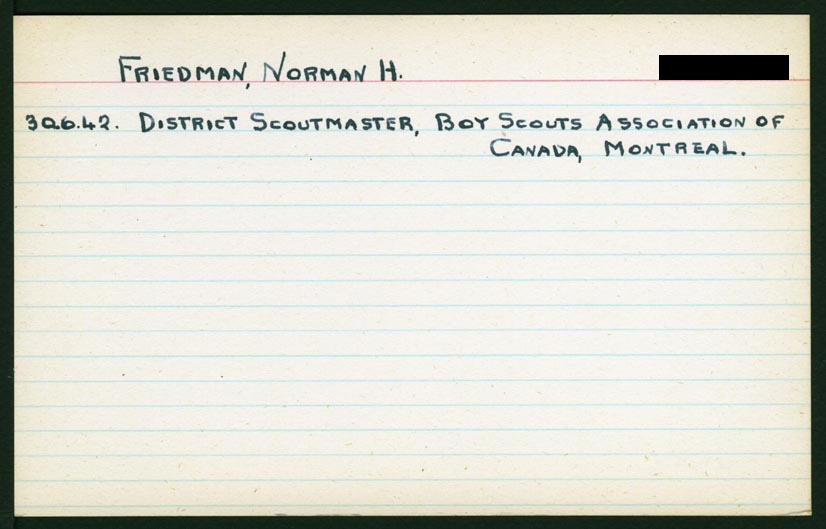 FRIEDMAN, NORMAN H.
30.6.42. DISTRICT SCOUTMASTER, BOY SCOUTS ASSOCIATION OF
CANADA, MONTREAL.